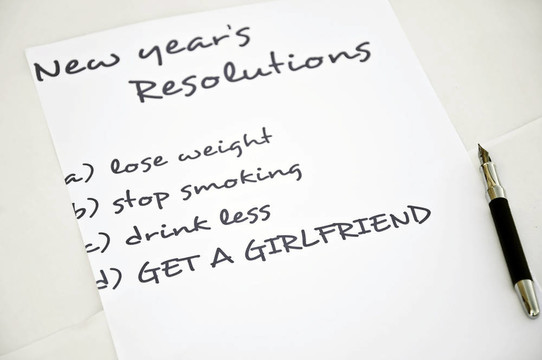 New year's
Resolutions
a) lose weight
b) stop smoking
c) drink less
d) GET A GIRLFRIEND